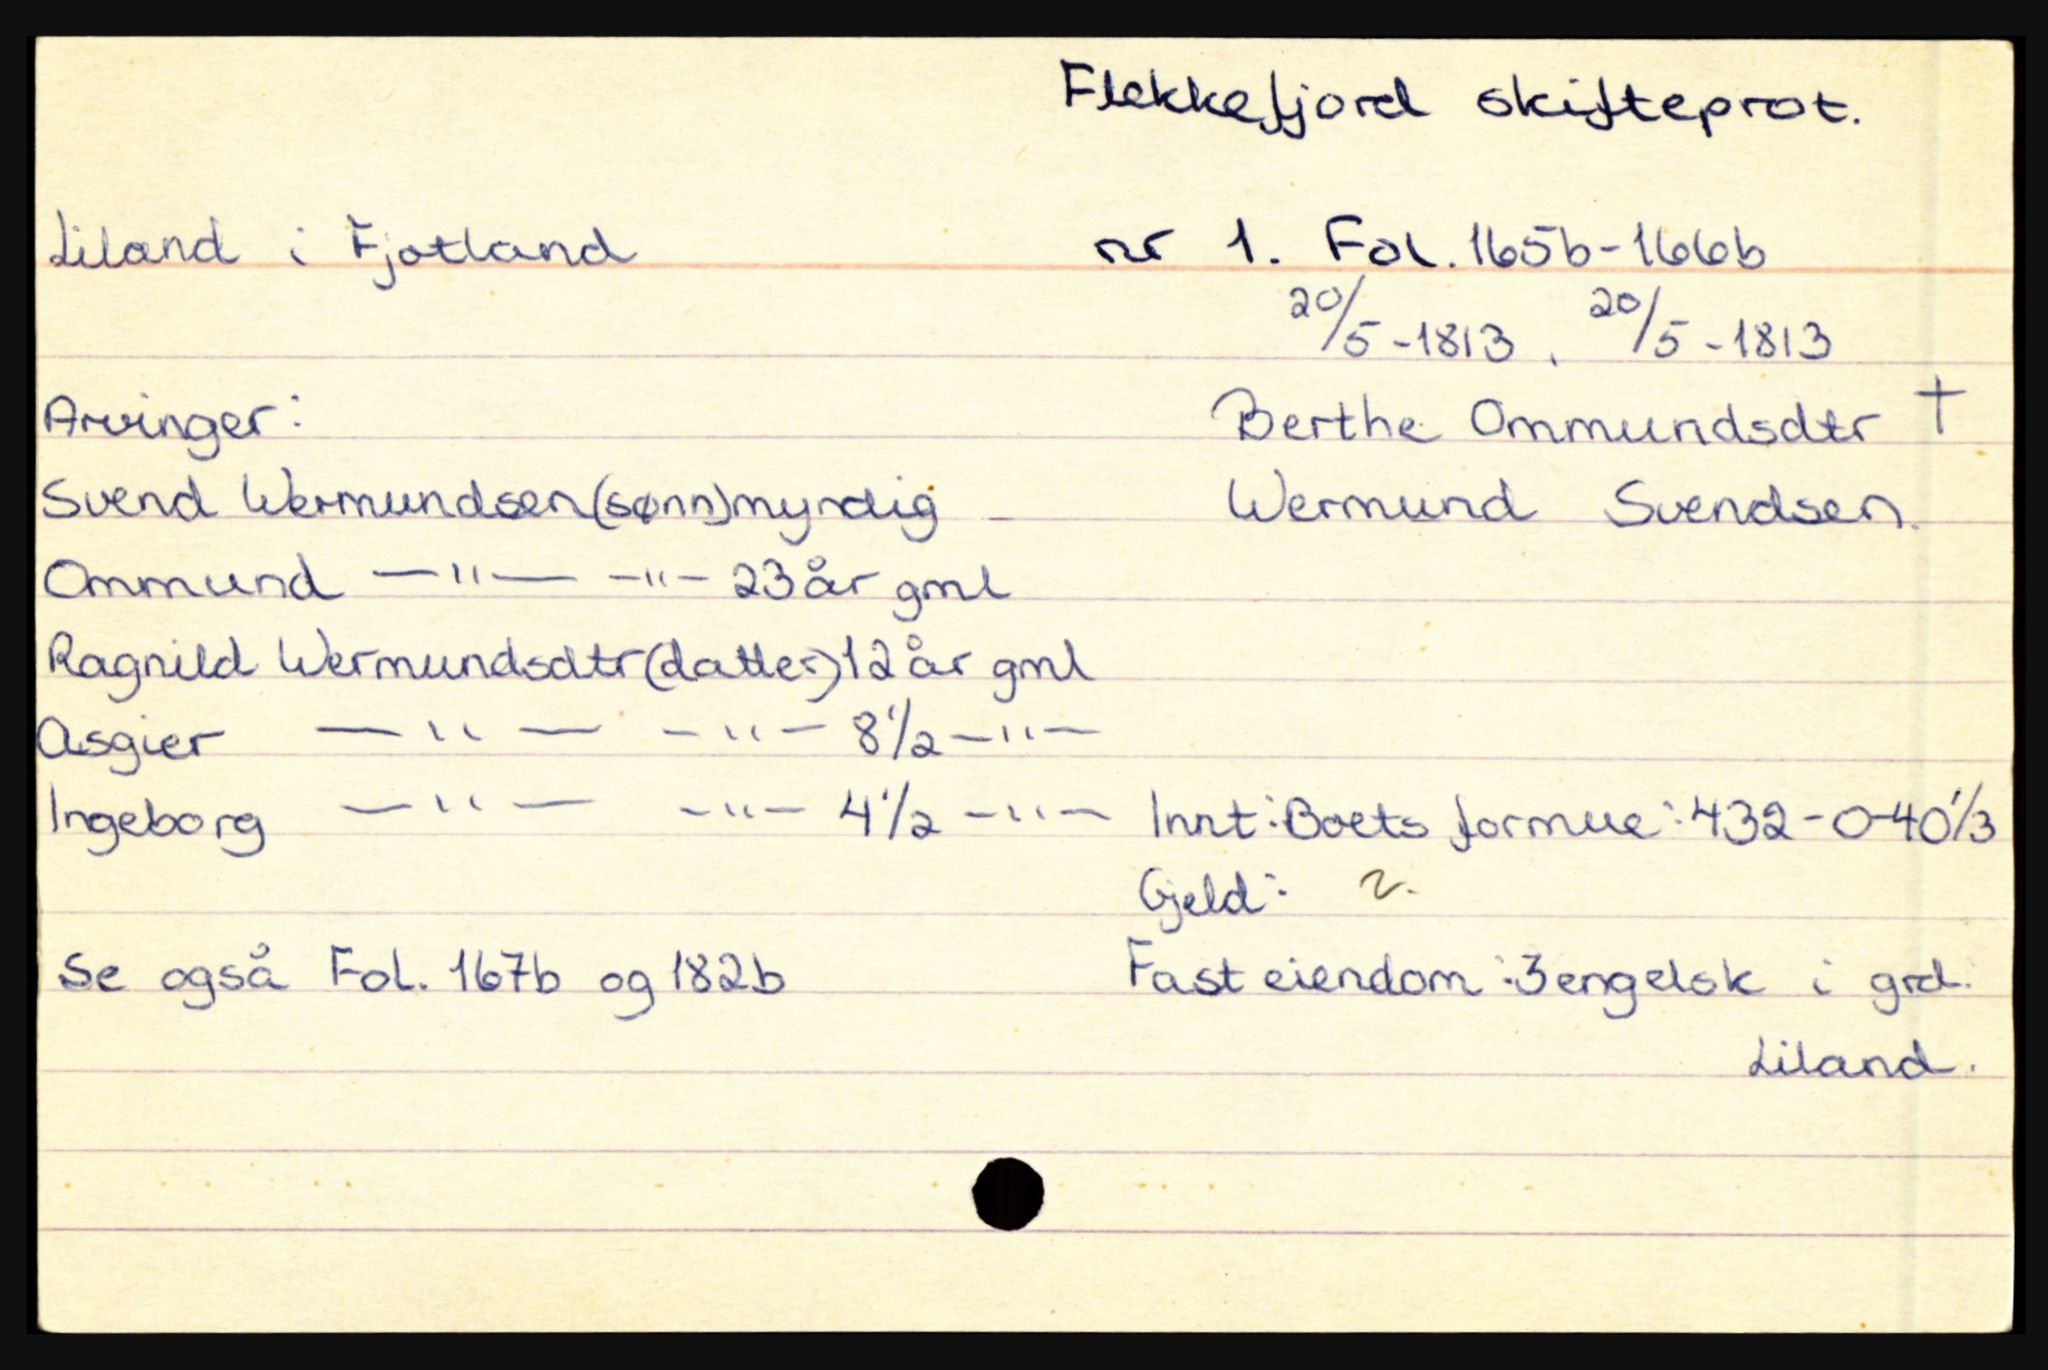 Flekkefjord skifteprot.
Liland i Fjotland nr 1. Fol. 165b-166b
20/5-1813, 20/5-1813
Arvinger: Berthe Ommundsdtr †
Svend Wermundsen (sønn) myndig - Wermund Svendsen.
Ommund —"— -"- 23 år gml
Ragnild Wermundsdtr (datter) 12 år gml
Asgier —"— -"- 8 1/2 -"-
Ingeborg —"— -"- 4 1/2 -"- Innt: Boets formue: 432-0-40 1/3
Gjeld:
Se også Fol. 167b og 182b Fast eiendom: 3 engelsk i grd.
Liland.